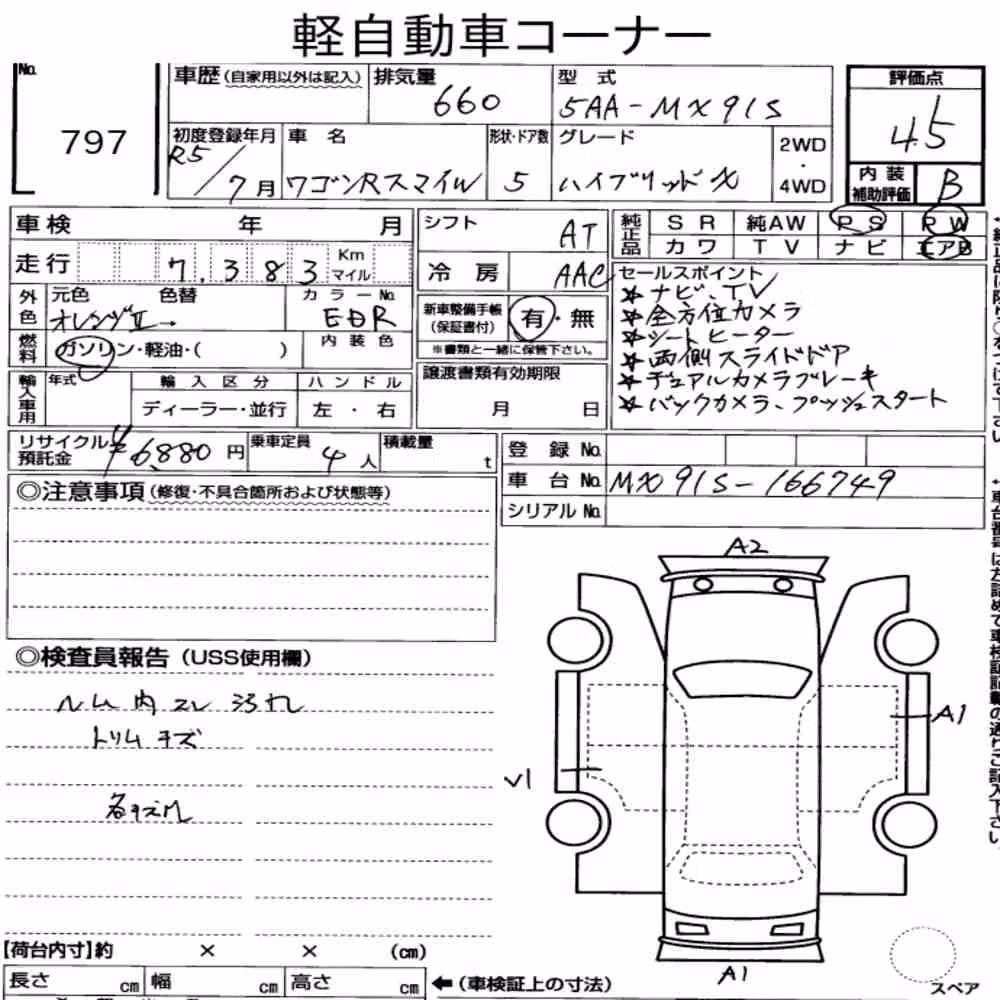 軽自動車コーナー
No. 797
車歴(自家用以外は記入) 排気量 660 型式 5AA-MX91S 評価点 4.5
初度登録年月 R5/7月 車名 ワゴンRスマイル 形状・ドア数 5 グレード ハイブリッドX 2WD・4WD 内装補助評価 B
車検 年 月 シフト AT 純正品 SR 純AW PS PW
走行 7.383 Km マイル 冷房 AAC カワ TV ナビ エアB
外色 元色 オレンジⅡ→ 色替 カラーNo. EDR 内装色
新車整備手帳(保証書付) 有・無
※書類と一緒に保管下さい。
燃料 ガソリン・軽油・( )
セールスポイント
☆ナビ、TV
☆全方位カメラ
☆シートヒーター
☆両側スライドドア
☆デュアルカメラブレーキ
☆バックカメラ、プッシュスタート
輸入車用 年式 輸入区分 ハンドル
ディーラー・並行 左・右
譲渡書類有効期限
月 日
リサイクル預託金 ¥6,880円 乗車定員 4人 積載量 t
登録No.
車台No. MX91S-166749
シリアルNo.
◎注意事項(修復・不具合箇所および状態等)
◎検査員報告(USS使用欄)
ルーム内コレ汚れ
トリムキズ
各キズ凹
A2
A1
V1
A1
スペア
【荷台内寸】約 × × (cm)
長さ cm 幅 cm 高さ cm ←(車検証上の寸法)